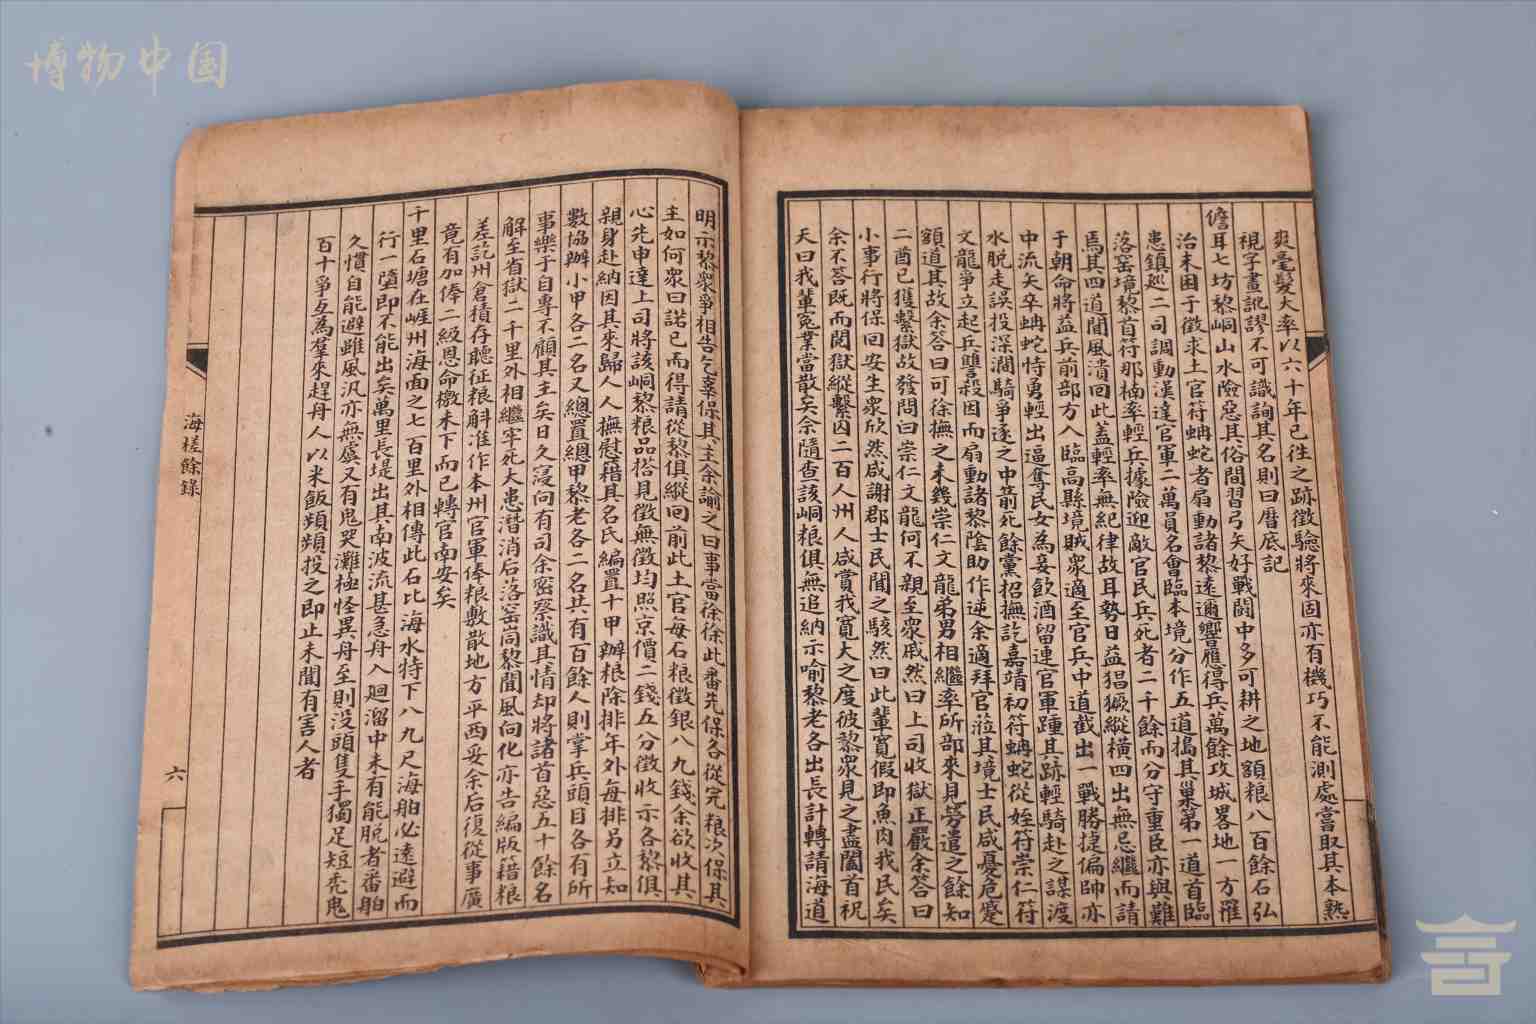 博物中国
爽亳髮大率以六十年已徃之跡徵驗將來固亦有機巧不能測處嘗取其本熟
視字畫訛謬不可識詢其名則曰曆底記
儋耳七坊黎峒山水險惡其俗閒習弓矢好戰鬬中多可耕之地額粮八百餘石弘
治末困于徵求土官符蚺蛇者扇動諸黎遠邇響應得兵萬餘攻城畧地一方罹
患鎮廵二司調動漢達官軍二萬員名會臨本境分作五道搗其巢第一道首臨
落窑境黎首符那楠率輕兵據險迎敵官民兵死者二千餘而分守重臣亦與難
焉其四道聞風潰回此蓋輕率無紀律故耳勢日益猖獗縱橫四出無忌繼而請
于朝命將益兵前部方入臨高縣境賊衆適至官兵中道截出一戰勝捷偏帥亦
中流矢卒蚺蛇恃勇輕出逼奪民女為妾飲酒留連官軍踵其跡輕騎赴之謀渡
水脫走誤投深澗騎爭逐之中箭死餘黨招撫訖嘉靖初符蚺蛇從姪符崇仁符
文龍爭立起兵讐殺因而扇動諸黎陰助作逆余適拜官涖其境士民咸憂危蹙
額道其故余答曰可徐撫之未幾崇仁文龍弟男相繼率所部來見勞遣之餘知
二酋已獲繫獄故發問曰崇仁文龍何不親至衆戚然曰上司收獄正嚴余答曰
小事行將保回安生衆欣然咸謝郡士民聞之駭然曰此輩寬假即魚肉我民矣
余不答既而閱獄縱繫囚二百人州人咸賞我寬大之度彼黎衆見之盡闔首祝
天曰我輩寃業當散矣余隨查該峒粮俱無追納示喻黎老各出長計轉請海道
明示黎衆爭相告乞辜保其主余諭之曰事當徐徐此番先保各從完粮次保其
主如何衆曰諾已而得請從黎俱縱回前此土官每石粮徵銀八九錢余欲收其
心先申達上司將該峒黎粮品搭見徵無徵均照京價二錢五分徵收示各黎俱
親身赴納因其來歸人人撫慰籍其名氏編置十甲辦粮除排年外每排另立知
數協辦小甲各二名又總置總甲黎老各二名共有百餘人則掌兵頭目各有所
事樂于自專不顧其主矣日久寖向有司余密察識其情却將諸首惡五十餘名
解至省獄二千里外相繼牢死大患潛消后落窑峝黎聞風向化亦告編版籍粮
差訖州倉積存聽征粮斛准作本州官軍俸粮敷散地方平西妥余后復從事廣
竟有加俸二級恩命檄未下而已轉官南安矣
千里石塘在崕州海面之七百里外相傳此石比海水特下八九尺海舶必遠避而
行一墮即不能出矣萬里長堤出其南波流甚急舟入迴溜中未有能脫者番舶
久慣自能避雖風汛亦無虞又有鬼哭灘極怪異舟至則没頭隻手獨足短禿鬼
百十爭互為羣來趕舟人以米飯頻頻投之即止未聞有害人者
海槎餘錄
六